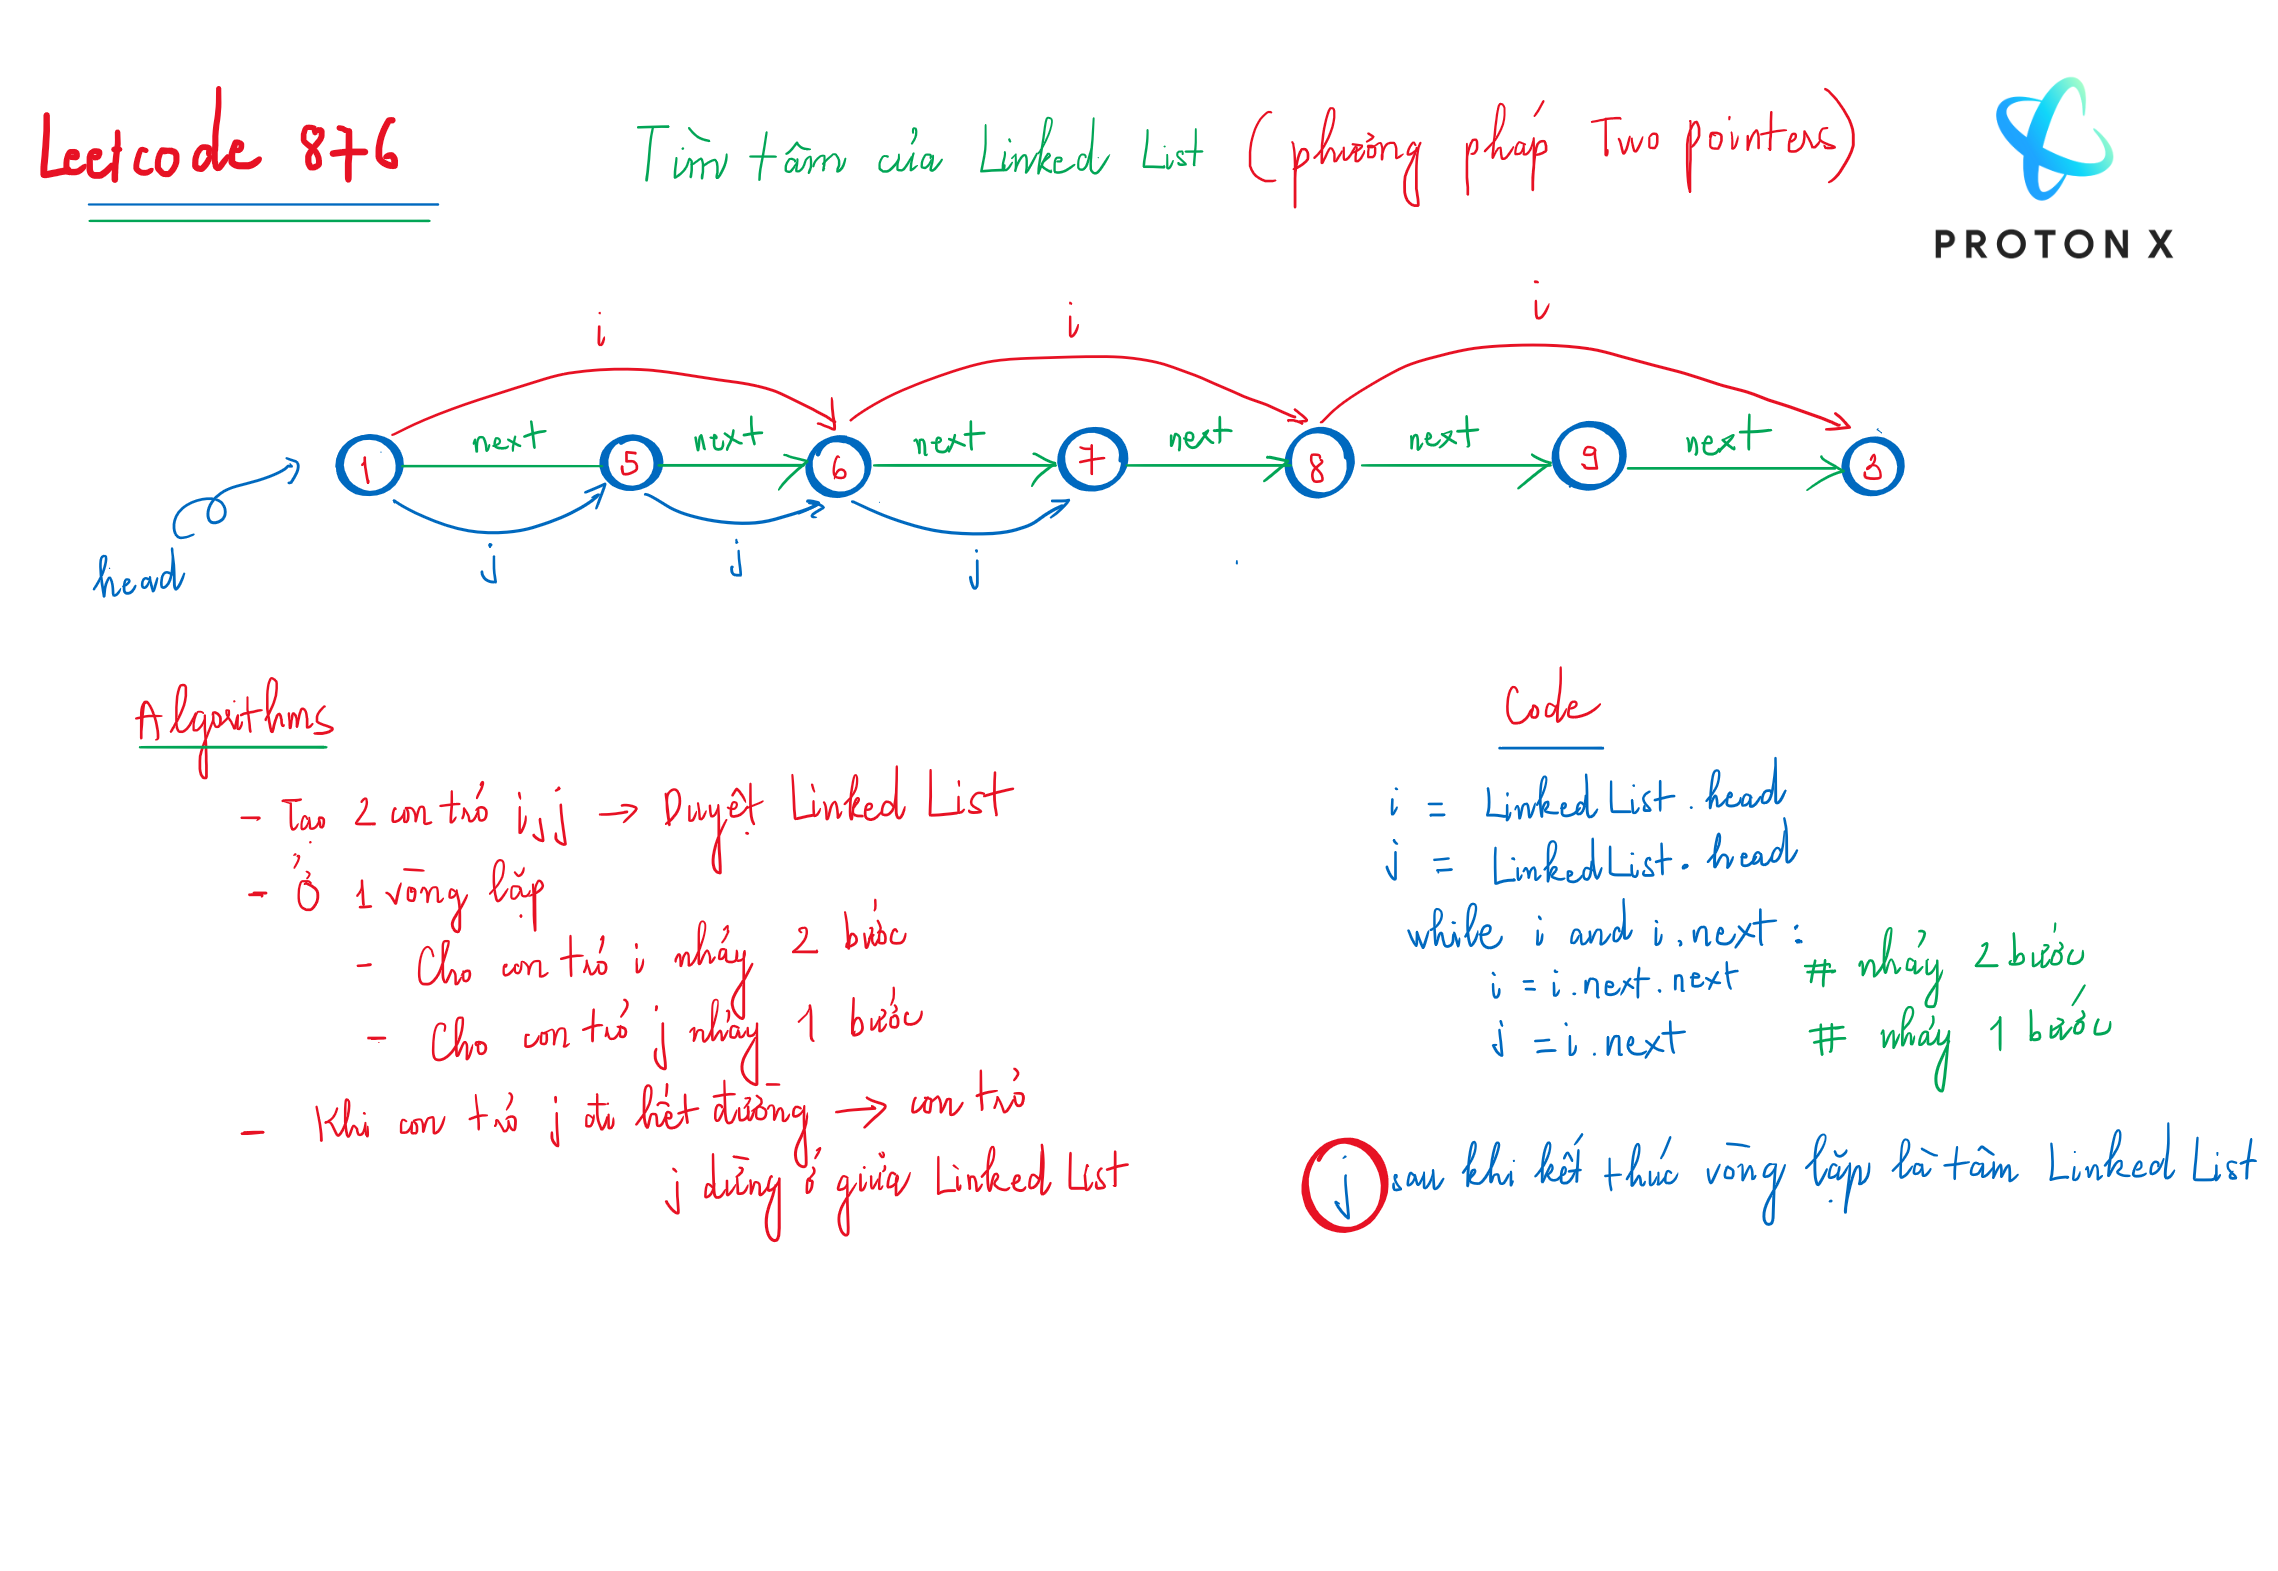 Leetcode 876
Tìm tâm của Linked List (phương pháp Two pointers)
PROTON X
i i i
next next next next next next
1 5 6 7 8 9 3
j j j
head
Algorithms
- Tạo 2 con trỏ i, j → Duyệt Linked List
- Ở 1 vòng lặp
- Cho con trỏ i nhảy 2 bước
- Cho con trỏ j nhảy 1 bước
- Khi con trỏ j đi hết đường → con trỏ
j dừng ở giữa Linked List
Code
i = Linked List.head
j = Linked List.head
while i and i.next:
i = i.next.next # nhảy 2 bước
j = i.next # nhảy 1 bước
j sau khi kết thúc vòng lặp là tâm Linked List